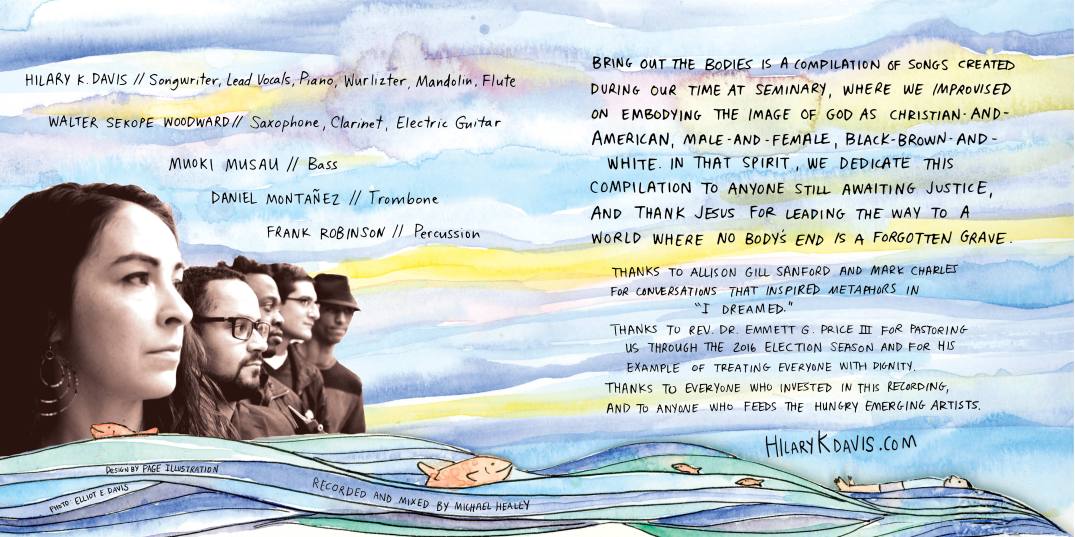 HILARY K. DAVIS // Songwriter, Lead Vocals, Piano, Wurlizter, Mandolin, Flute
WALTER SEKOPE WOODWARD // Saxophone, Clarinet, Electric Guitar
MUOKI MUSAU // Bass
DANIEL MONTAÑEZ // Trombone
FRANK ROBINSON // Percussion
DESIGN BY PAGE ILLUSTRATION
PHOTO: ELLIOT E. DAVIS
RECORDED AND MIXED BY MICHAEL HEALEY
BRING OUT THE BODIES IS A COMPILATION OF SONGS CREATED
DURING OUR TIME AT SEMINARY, WHERE WE IMPROVISED
ON EMBODYING THE IMAGE OF GOD AS CHRISTIAN-AND-
AMERICAN, MALE-AND-FEMALE, BLACK-BROWN-AND-
WHITE. IN THAT SPIRIT, WE DEDICATE THIS
COMPILATION TO ANYONE STILL AWAITING JUSTICE,
AND THANK JESUS FOR LEADING THE WAY TO A
WORLD WHERE NO BODY'S END IS A FORGOTTEN GRAVE.
THANKS TO ALLISON GILL SANFORD AND MARK CHARLES
FOR CONVERSATIONS THAT INSPIRED METAPHORS IN
"I DREAMED."
THANKS TO REV. DR. EMMETT G. PRICE III FOR PASTORING
US THROUGH THE 2016 ELECTION SEASON AND FOR HIS
EXAMPLE OF TREATING EVERYONE WITH DIGNITY.
THANKS TO EVERYONE WHO INVESTED IN THIS RECORDING,
AND TO ANYONE WHO FEEDS THE HUNGRY EMERGING ARTISTS.
HILARYKDAVIS.COM